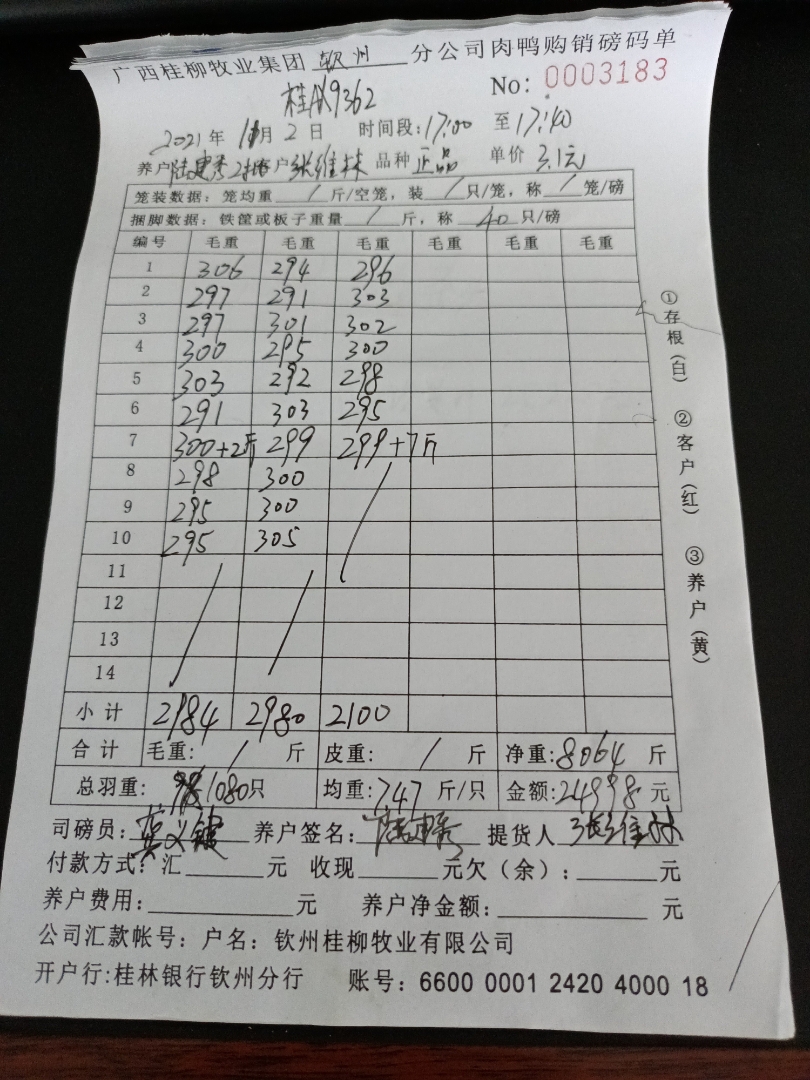 广西桂柳牧业集团 钦州 分公司肉鸭购销磅码单
No: 0003183
2021年 11月2日 时间段:17:00 至17:40
养户 客户张维林 品种 正品 单价 3.1元
笼装数据：笼均重 / 斤/空笼，装 / 只/笼，称 / 笼/磅
捆脚数据：铁筐或板子重量 / 斤，称 40 只/磅
编号 毛重 毛重 毛重 毛重 毛重 毛重
1 306 294 296
2 297 291 303
3 297 301 302
4 300 295 300
5 303 292 298
6 291 303 295
7 300+2斤 299 299+7斤
8 298 300
9 295 300
10 295 305
11
12
13
14
小计 2984 2980 2100
合计 毛重: / 斤 皮重: / 斤 净重:8064 斤
总羽重: 1080只 均重:7.47 斤/只 金额:24998 元
司磅员: 养户签名: 提货人 张维林
付款方式:汇 元 收现 元欠（余）: 元
养户费用: 元 养户净金额: 元
公司汇款帐号：户名：钦州桂柳牧业有限公司
开户行:桂林银行钦州分行 账号：6600 0001 2420 4000 18
①存根（白） ②客户（红） ③养户（黄）